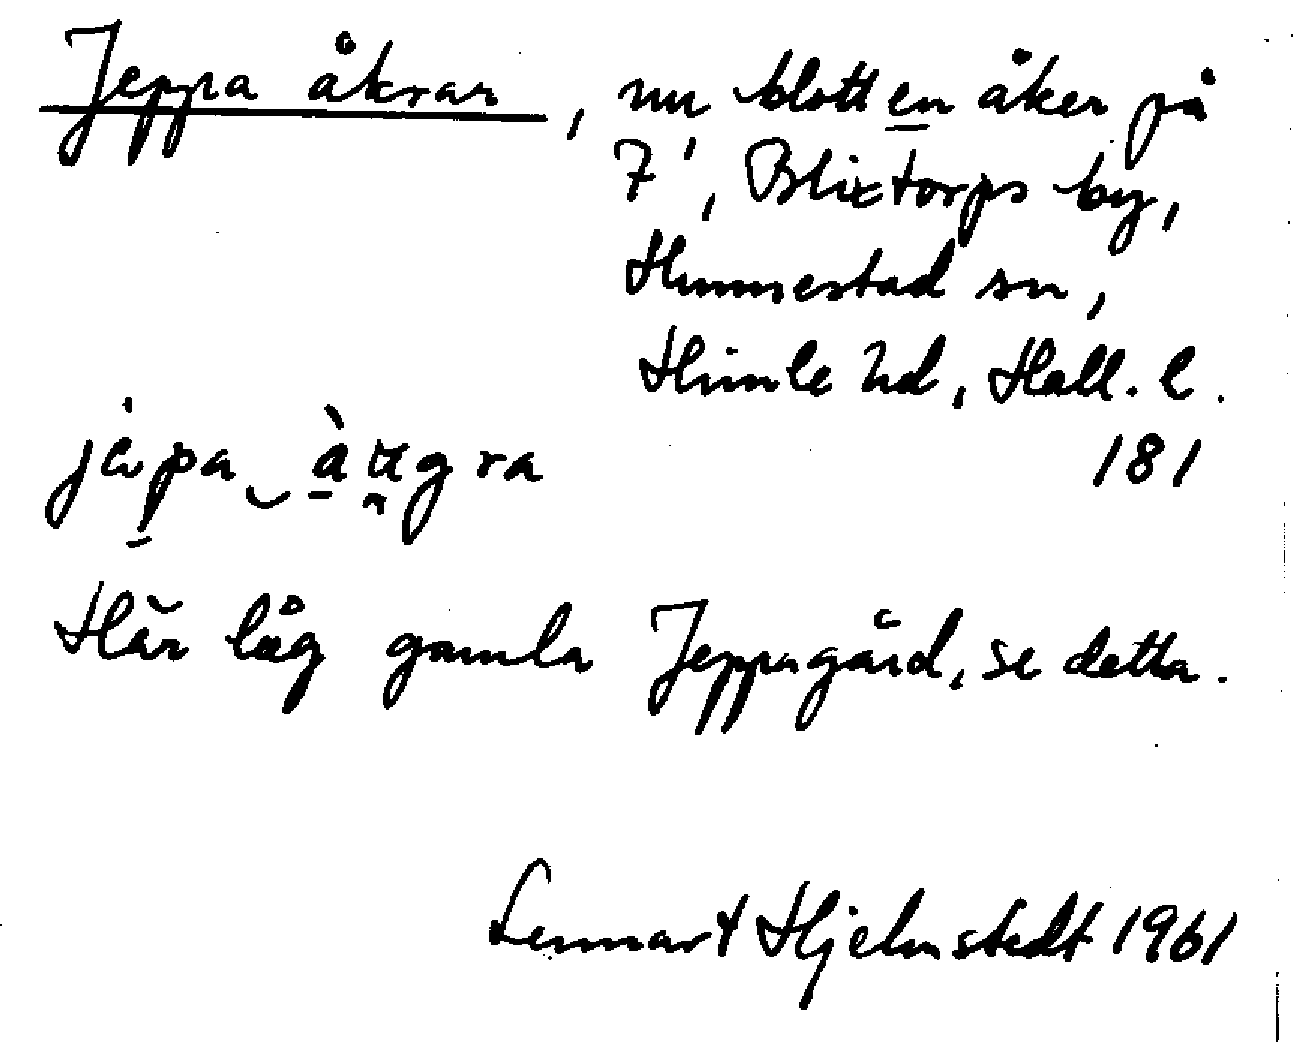 Jeppa åkrar, nu blott en åker på
7¹, Blixtorps by,
Hunnestad sn,
Himle hd, Hall. l.
181
Här låg gamla Jeppagård, se detta.
Lennart Hjelmstedt 1961